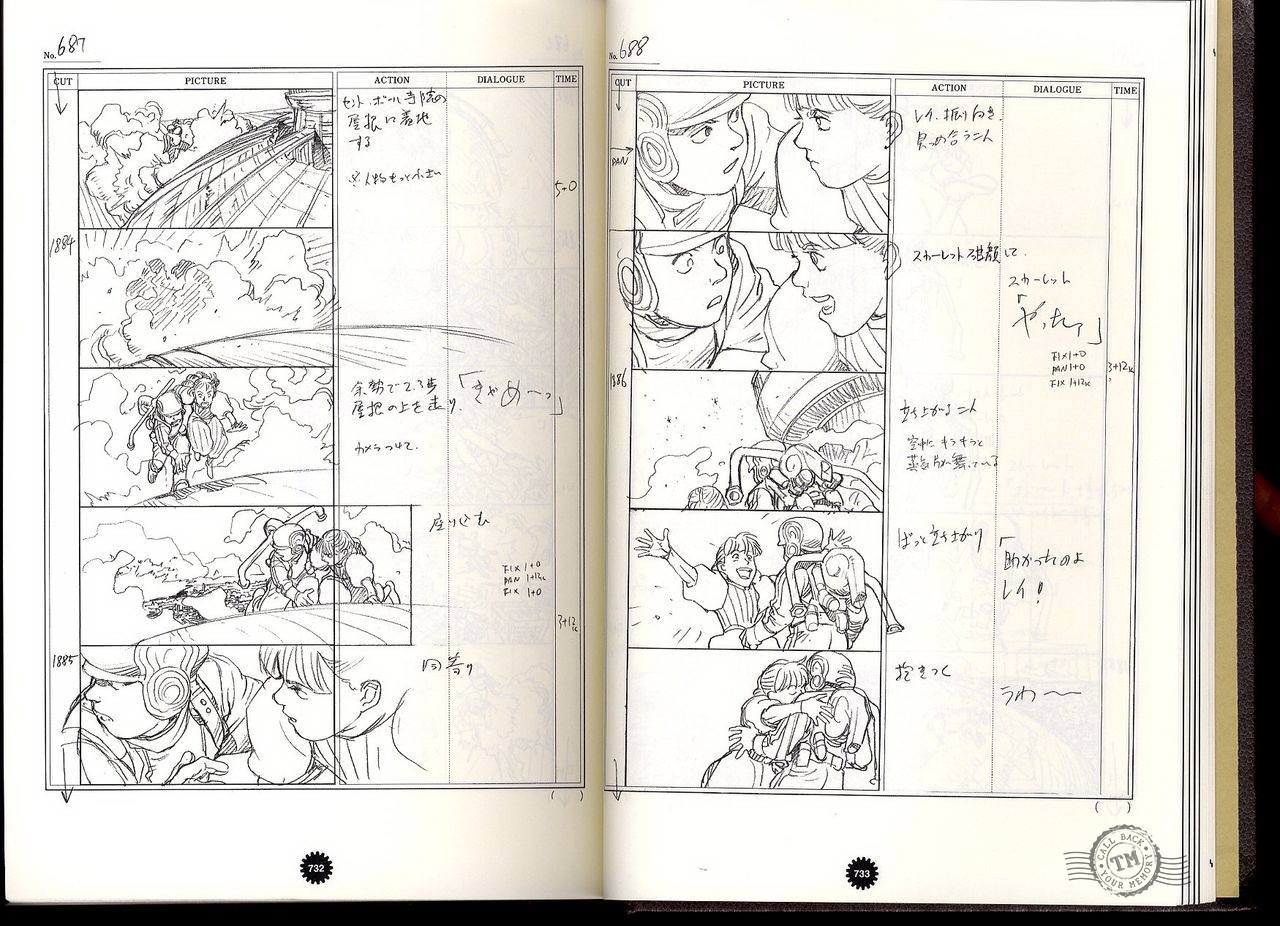 No. 687
CUT PICTURE ACTION DIALOGUE TIME
セント・ポール寺院の
屋根に着地
する
※人物もっと小さい
5+0
1884
余勢で2、3歩
屋根の上を走り
「きゃあ〜っ」
カメラつけて.
座り込む
FIX 1+0
PAN 1+12k
FIX 1+0
3+12k
1885
( )
732
No. 688
CUT PICTURE ACTION DIALOGUE TIME
PAN
レイ、振り向き.
見つめ合う二人
スカーレット
スカーレット
「やったァ」
FIX 1+0
PAN 1+0
FIX 1+12k
3+12k
1886
立ち上がる二人
空中に キラキラと
舞っている
ぱっと立ち上がり
「助かったのよ
レイ!
抱きつく
うわ〜
( )
733
CALL BACK
TM
YOUR MEMORY